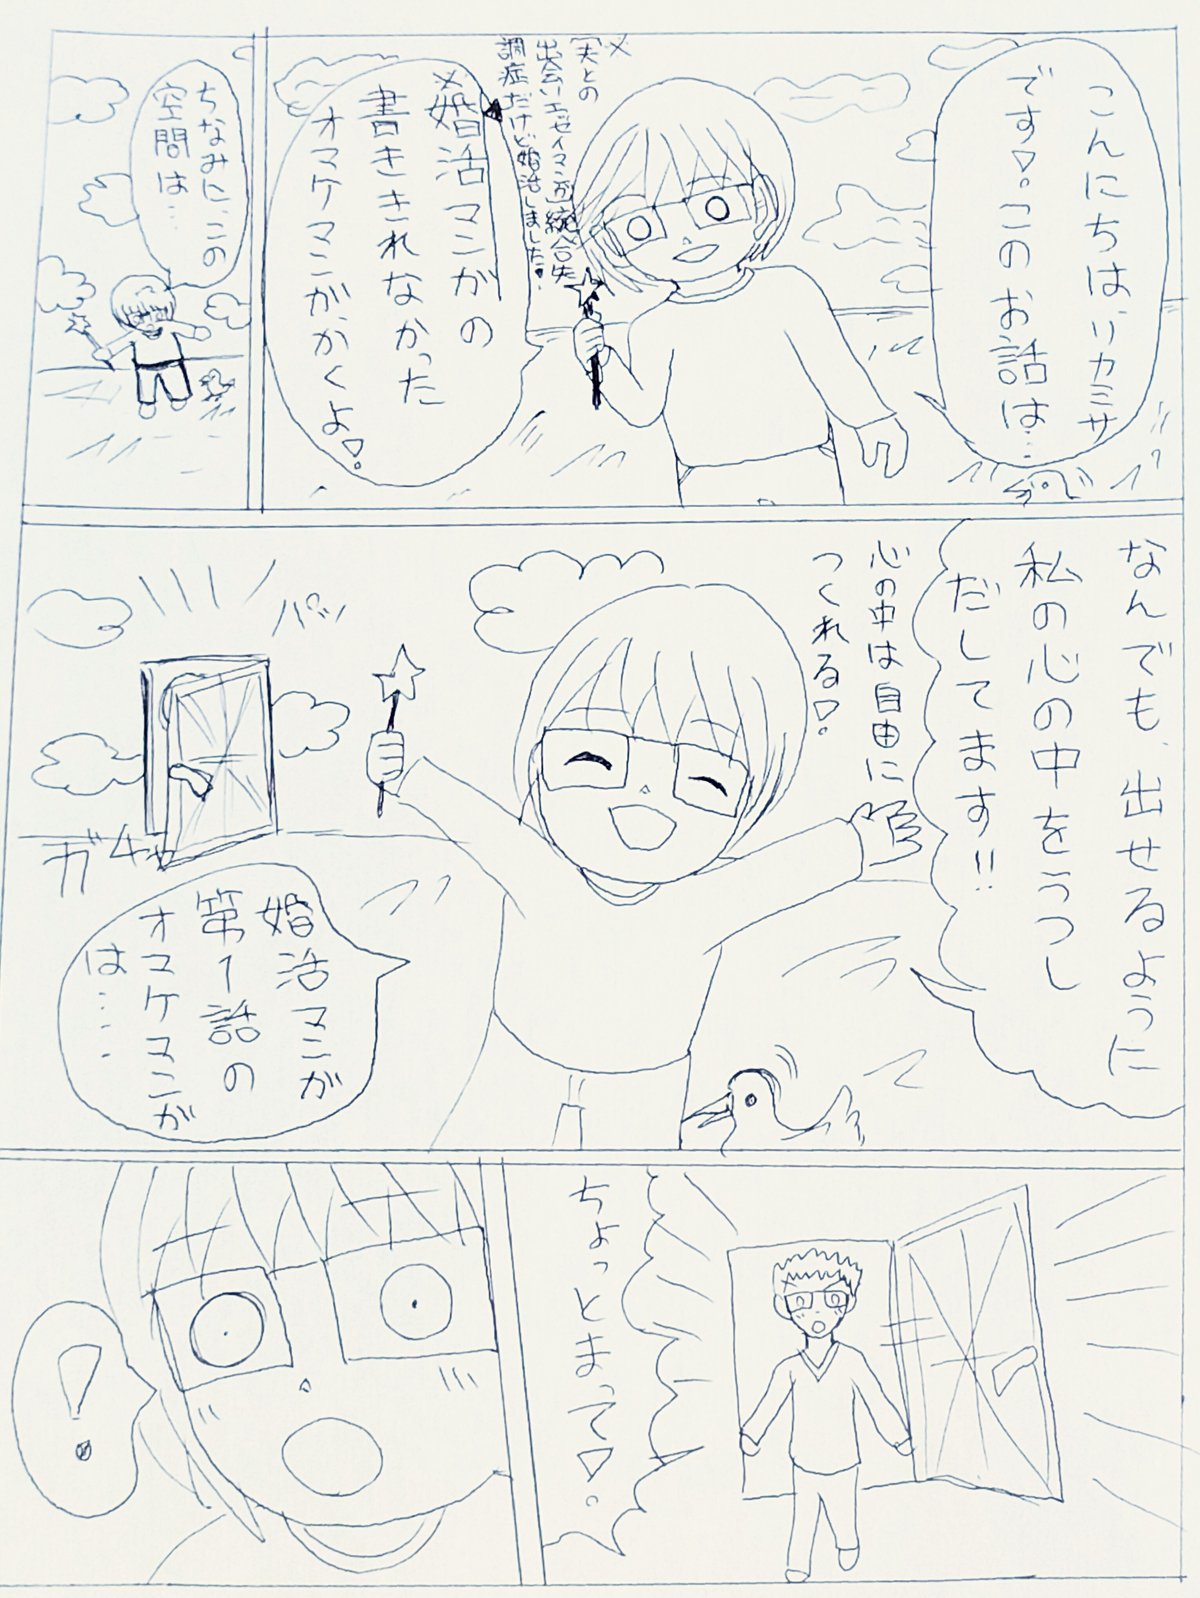 こんにちは、リカミサ
です♡。このお話は…
※
[夫との
出会いエッセイマンガ]統合失
調症だけど婚活しました♥.
※婚活マンガの
書ききれなかった
オマケマンガかくよ♡。
ちなみに、この
空間は…
なんでも、出せるように
私の心の中をうつし
だしてます!!
心の中は自由に
つくれる♡。
パッ
ガチャ
婚活マンガ
第1話の
オマケマンガ
は……
ちょっとまって♡。
!